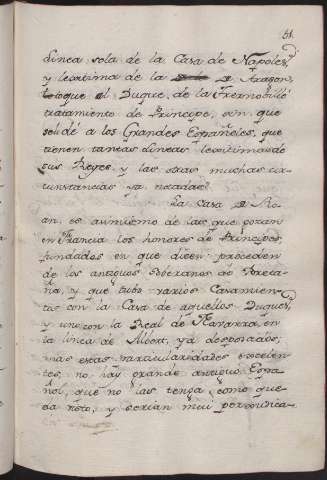 61.
Linea sola de la Casa de Napoles,
y legitima de la de Aragon,
toque al Duque de la Tremobille
tratamiento de Principe, sin que
se le dé a los Grandes Españoles, que
tienen tantas Lineas legitimas de
sus Reyes, y las otras muchas cir-
cunstancias ya notadas.
La Casa de Ro-
an, es asimismo de las que gozan
en Francia los honores de Principes,
fundados en que dicen proceden
de los antiguos Soberanos de Breta-
ña, y que tubo varios Casamien-
tos con la Casa de aquellos Duques,
y uno con la Real de Navarra, en
la linea de Albert, ya desposeida;
mas estas particularidades excelen-
tes, no hay grande antiguo Espa-
ñol, que no las tenga, como que-
da dicho, y serian mui per